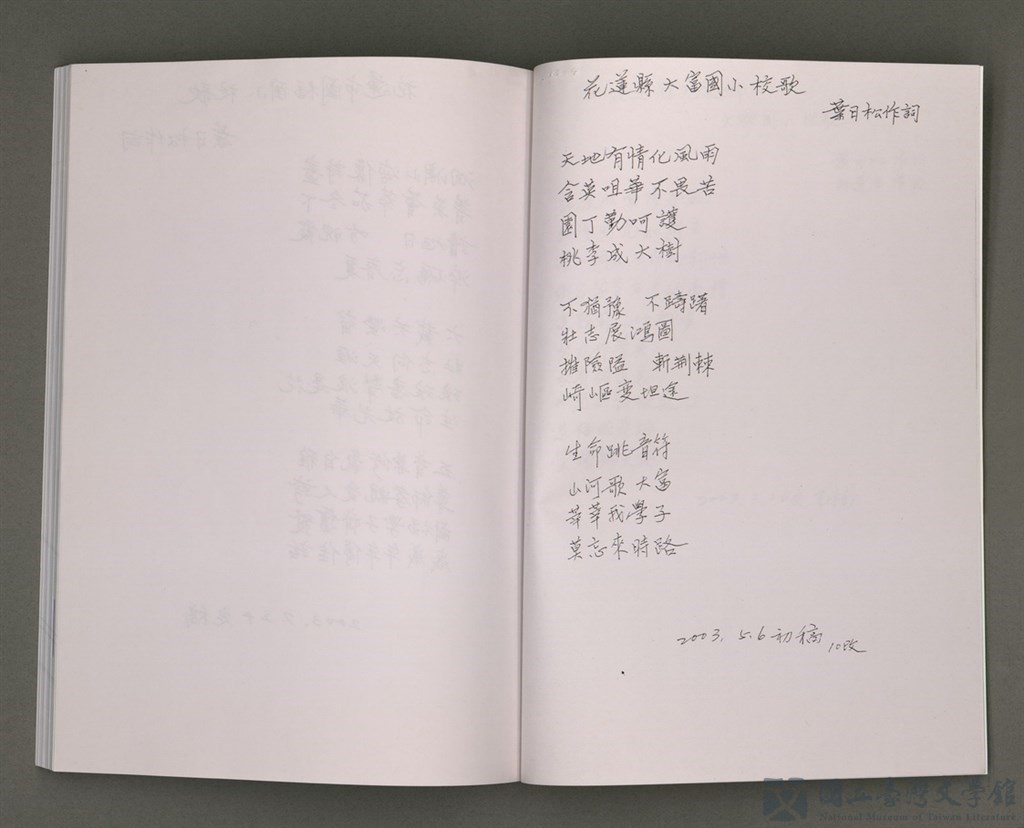 花蓮縣大富國小校歌
葉日松作詞
天地有情化風雨
含英咀華不畏苦
園丁勤呵護
桃李成大樹
不猶豫 不躊躇
壯志展鴻圖
摧險隘 斬荆棘
崎嶇變坦途
生命跳音符
山河歌大富
莘莘我學子
莫忘來時路
2003. 5.6初稿 10改
國立臺灣文學館
National Museum of Taiwan Literature